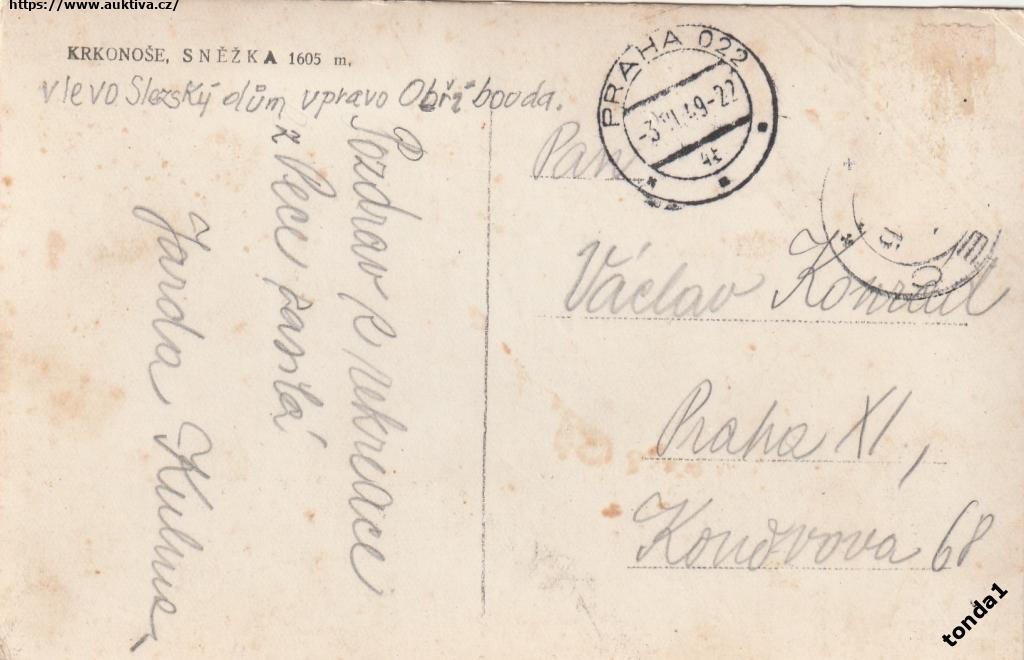 https://www.auktiva.cz/
KRKONOŠE, SNĚŽKA 1605 m.
vlevo Slezský dům vpravo Obří bouda.
Pozdrav z rekreace
z Pece
Jarda
PRAHA 022
49-22
4t
Pan
Václav Konrád
Praha XI,
68
tonda1